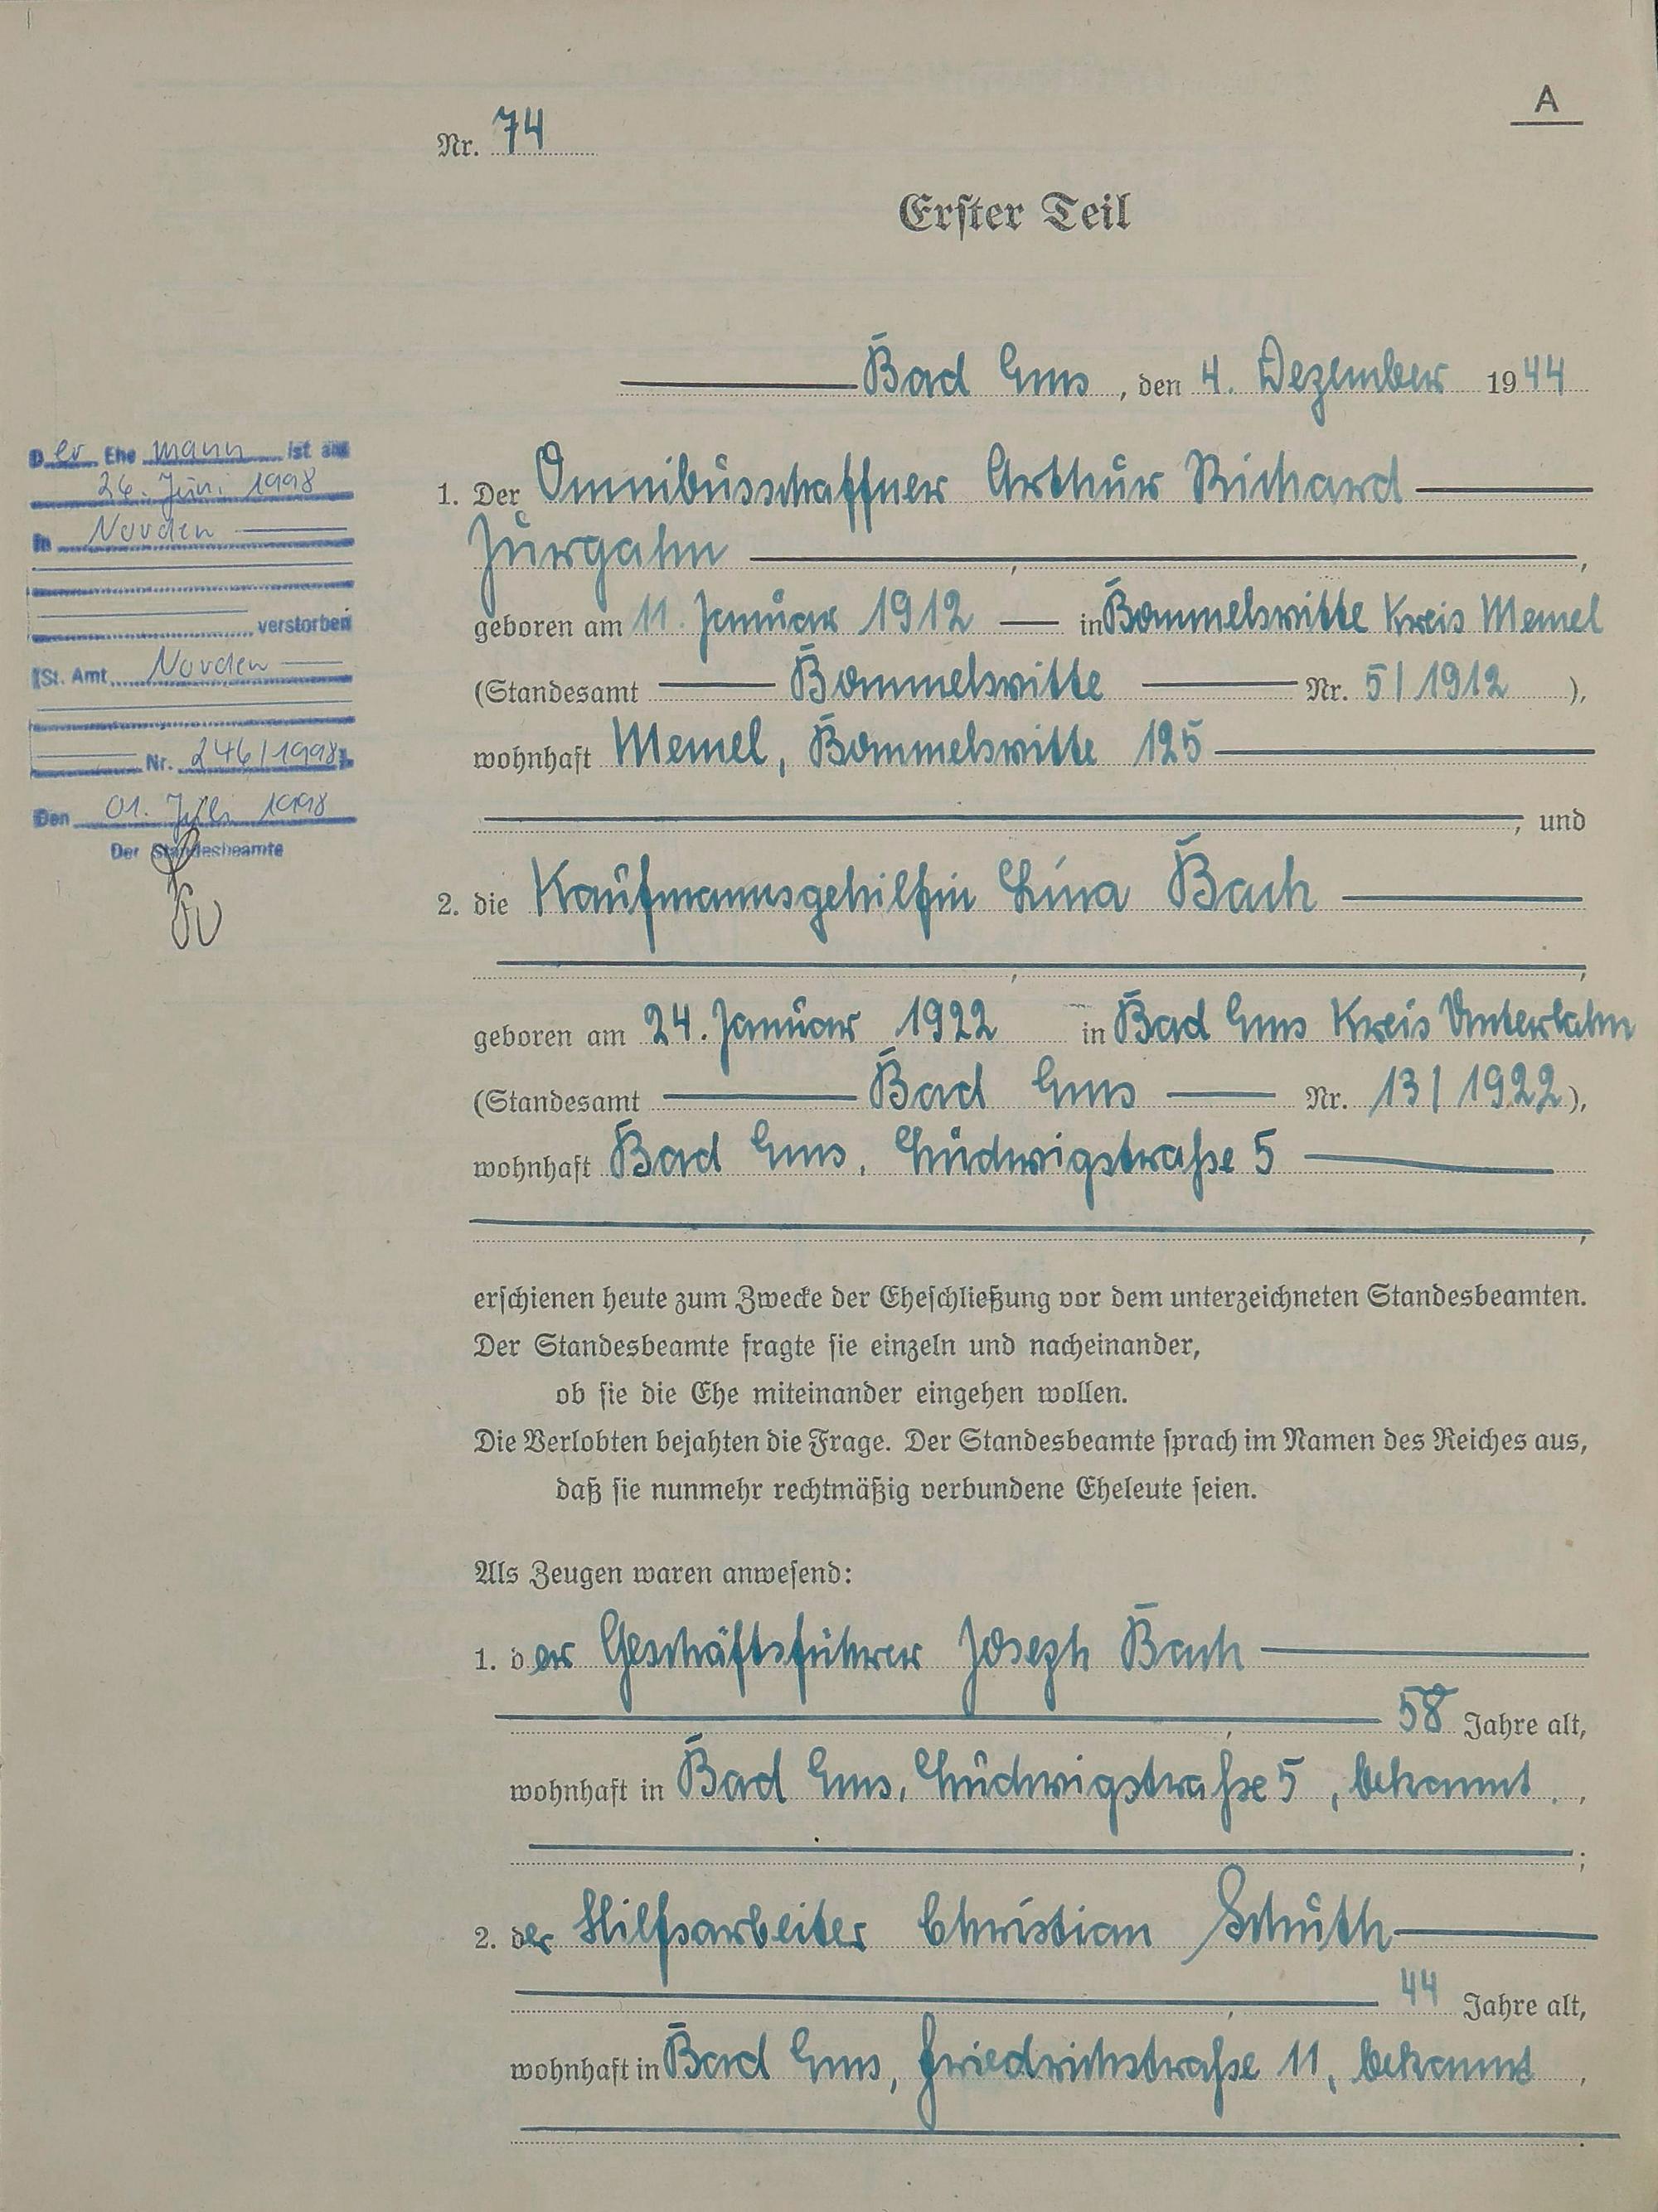 A
Nr. 74
Erster Teil
Bad Ems, den 4. Dezember 1944
Der Ehemann ist am
26. Juni 1998
in Norden
verstorben
(St. Amt Norden
Nr. 246/1998).
Den 01. Juli 1998
Der Standesbeamte
1. Der Omnibusschaffner Arthur Richard
Jurgahn,
geboren am 11. Januar 1912 in Bommelsvitte Kreis Memel
(Standesamt Bommelsvitte Nr. 5/1912),
wohnhaft Memel, Bommelsvitte 125
, und
2. die Kaufmannsgehilfin Lina Bach
,
geboren am 24. Januar 1922 in Bad Ems Kreis Unterlahn
(Standesamt Bad Ems Nr. 13/1922),
wohnhaft Bad Ems, Ludwigstraße 5
,
erschienen heute zum Zwecke der Eheschließung vor dem unterzeichneten Standesbeamten.
Der Standesbeamte fragte sie einzeln und nacheinander,
ob sie die Ehe miteinander eingehen wollen.
Die Verlobten bejahten die Frage. Der Standesbeamte sprach im Namen des Reiches aus,
daß sie nunmehr rechtmäßig verbundene Eheleute seien.
Als Zeugen waren anwesend:
1. der Geschäftsführer Joseph Bach
, 58 Jahre alt,
wohnhaft in Bad Ems, Ludwigstraße 5, bekannt.,
;
2. der Hilfsarbeiter Christian Schuth
, 44 Jahre alt,
wohnhaft in Bad Ems, Friedrichstraße 11, bekannt,
.